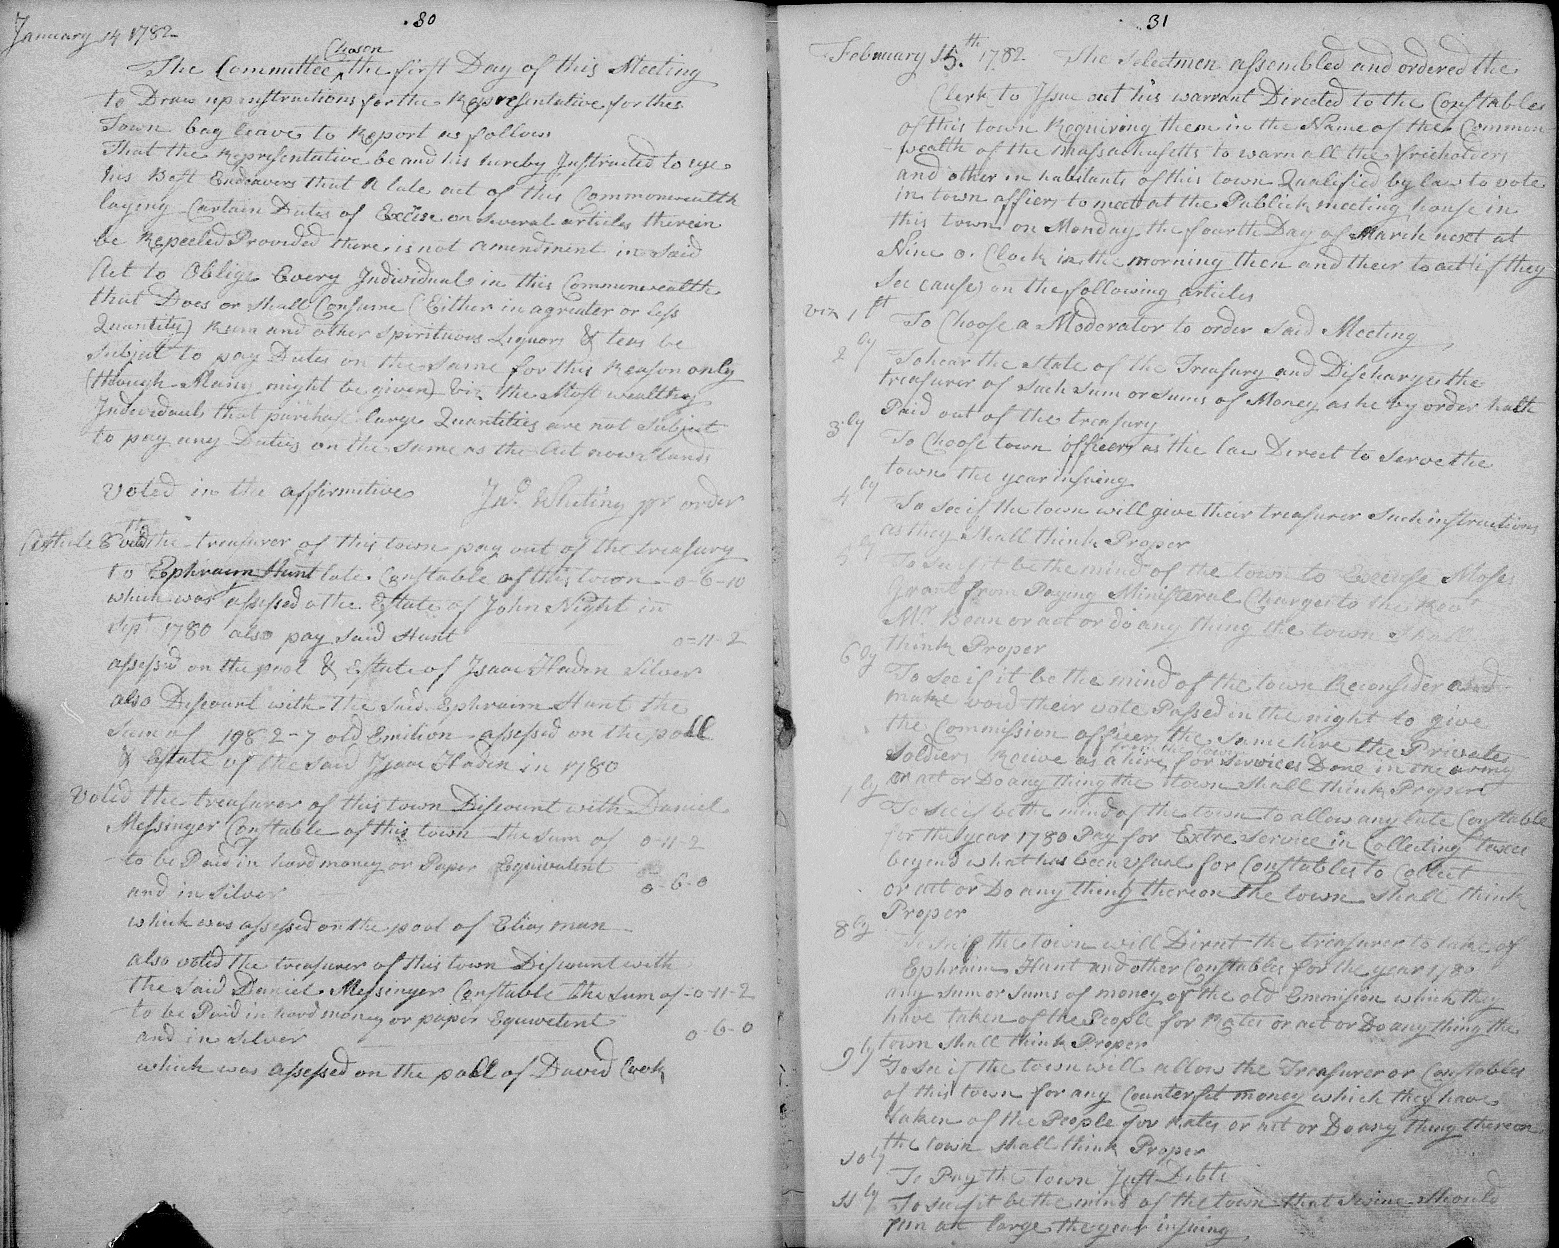 80
January 14 1782
Chosen
The Committee the first Day of this Meeting
to Draw up instructions for the Representative for this
Town beg leave to Report as follows
That the Representative be and his hereby Instructed to use
his Best Endeavors that A late act of this Commonwealth
laying Certain Duties of Excise on Several articles therein
be Repeeled Provided there is not amendment in Said
Act to Oblige Every Individual in this Commonwealth
that Does or shall Consume (Either in agreater or less
Quantity) Rum and other Spirituous Liquors & teas be
Subject to pay Duties on the Same for this Reason only
(though Many might be given) viz the Most wealthy
Individuals that purchase large Quantities are not Subject
to pay any Duties on the Same as the Act now Stands
Voted in the affirmitive Jno. Whiting pr order
Article 8th Voted the treasurer of this town pay out of the treasury
to Ephraim Hunt late Constable of this town 0-6-10
which was assessed o the Estate of John Night in
Sept 1780 also pay Said Hunt 0-11-2
assessed on the pool & Estate of Isaac Haden Silver
also Discount with the Said Ephraim Hunt the
Sum of 198 2-7 old Emition assessed on the poll
& Estate of the Said Isaac Haden in 1780
Voted the treasurer of this town Discount with Daniel
Messinger Constable of this town the Sum of 0-11-2
to be Paid in hard money or Paper Equivalent
and in Silver 0-6-0
which was assessed on the pool of Elias man
also voted the treasurer of this town Discount with
the Said Daniel Messinger Constable the Sum of 0-11-2
to be Paid in hard money or paper Equivelent
and in Silver 0-6-0
which was assessed on the poll of David Cook
31
February 15.th 1782 The Selectmen assembled and ordered the
Clerk to Issue out his warrant Directed to the Constables
of this town Requiring them in the Name of the Common
-wealth of the Massachusetts to warn all the freeholders
and other in habitants of this town Qualified by law to vote
in town affiers to meet at the Publick meeting house in
this town on Monday the fourth Day of March next at
Nine o. Clock in the morning then and their to act (if they
See cause) on the following articles
viz 1st To Choose a Moderator to order Said Meeting
2ly To hear the State of the Treasury and Discharge the
treasurer of Such Sum or Sums of Money as he by order hath
Paid out of the treasury
3ly To Choose town officers as the law Direct to Serve the
town the year insuing
4ly To See if the town will give their treasurer Such instructions
as they Shall think Proper
5ly To See if it be the mind of the town to Excuse Moses
Grant from Paying Ministeral Charges to the Revt
Mr Bean or act or do any thing the town Shall
think Proper
6ly To See if it be the mind of the town Reconsider and
make void their vote Passed in the night to give
the Commission officers the Same hire the Privates
Soldiers Receive as a hire from the town for Services Done in the army
or act or Do any thing the town Shall think Proper
ly To See if be the mind of the town to allow any late Constable
for the year 1780 Pay for Extre Service in Collecting taxes
beyend what has been usual for Constables to Collect
or act or Do any thing thereon the town Shall think
Proper
8ly To See if the town will Dirret the treasurer to take of
Ephraim Hunt and other Constables for the year 1780
any Sum or Sums of money of the old Emmision which they
have taken of the People for Rates or act or Do any thing the
town Shall think Proper
9ly To See if the town will allow the Treasurer or Constables
of this town for any Counterfit money which they have
taken of the People for Rates or act or Do any thing thereon
the town Shall think Proper
10ly To Pay the town Just Debts
11ly To See if it be the mind of the town that Swine Should
run at large the year insuing